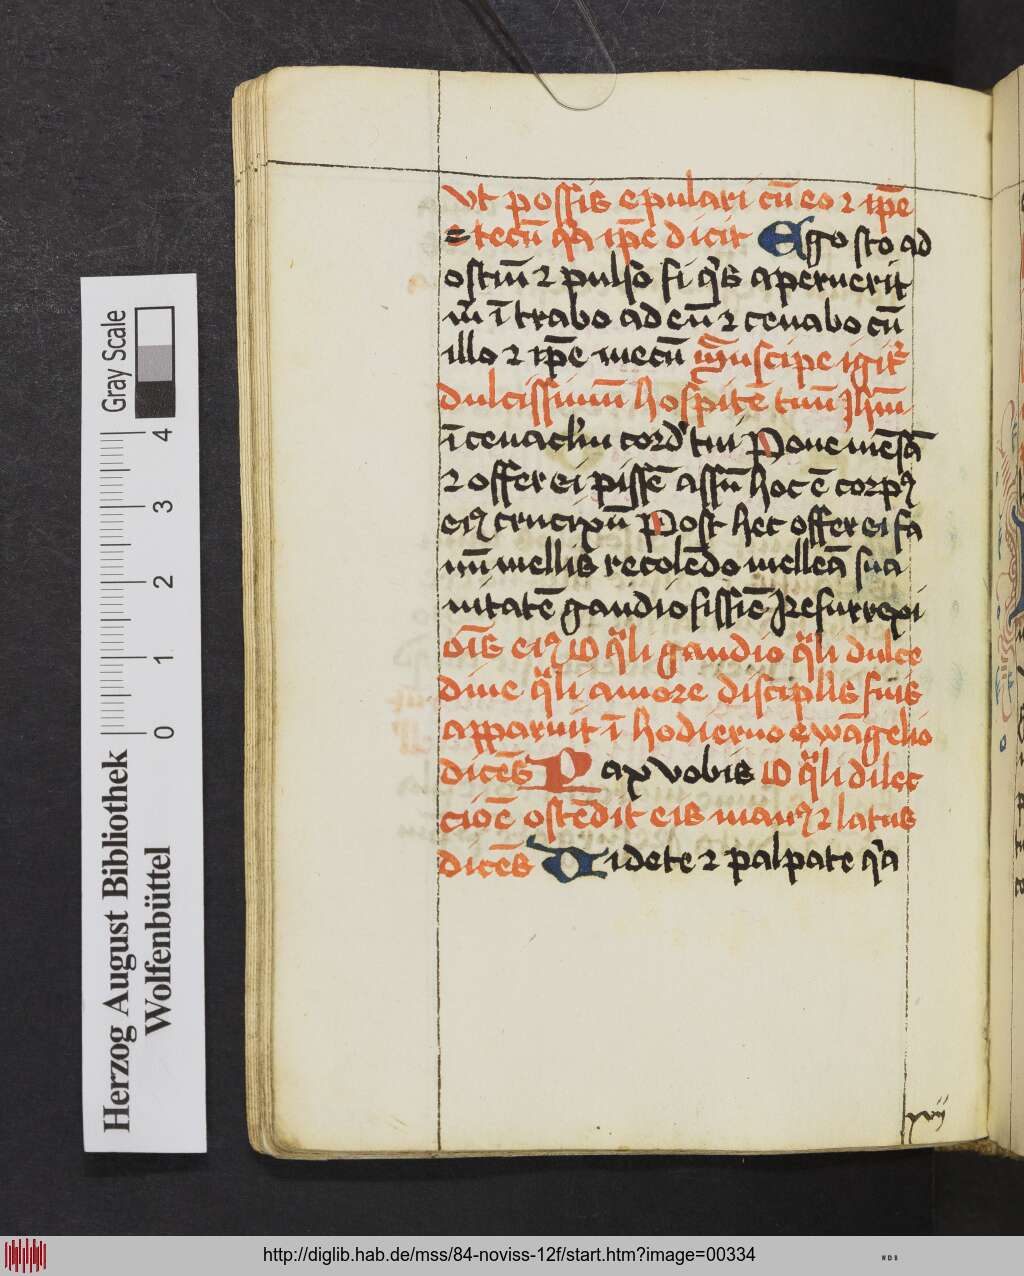 vt possis epulari cū eo ⁊ ip̄e
tecū qͣa ip̄e dicit Ego sto ad
ostiū ⁊ pulso si qͥs aperuerit
m̄ ītrabo ad eū ⁊ cenabo cū
illo ⁊ ip̄e mecū Suscipe igitͬ
dulcissimū hospitē tuū Ihm̄
ī cenacl'm cord' tui Pone mēsā
⁊ offer ei pissē assū hoc ē corpꝰ
eiꝰ crucixū Post hec offer ei fa
uū mellis recolēdo melleā sua
uitatē gaudiosissiē Resurrexi
oīs eiꝰ O qͣli gaudio qͣli dulce
dine qͣli amore disciplis suis
apparuit ī hodierno ewāgelio
dicēs Pax vobis O qͣli dilec
cioē ostēdit eis manꝰ ⁊ latus
dicēs Videte ⁊ palpate qͣa
xvij
Gray Scale
4
3
2
1
0
Herzog August Bibliothek
Wolfenbüttel
http://diglib.hab.de/mss/84-noviss-12f/start.htm?image=00334